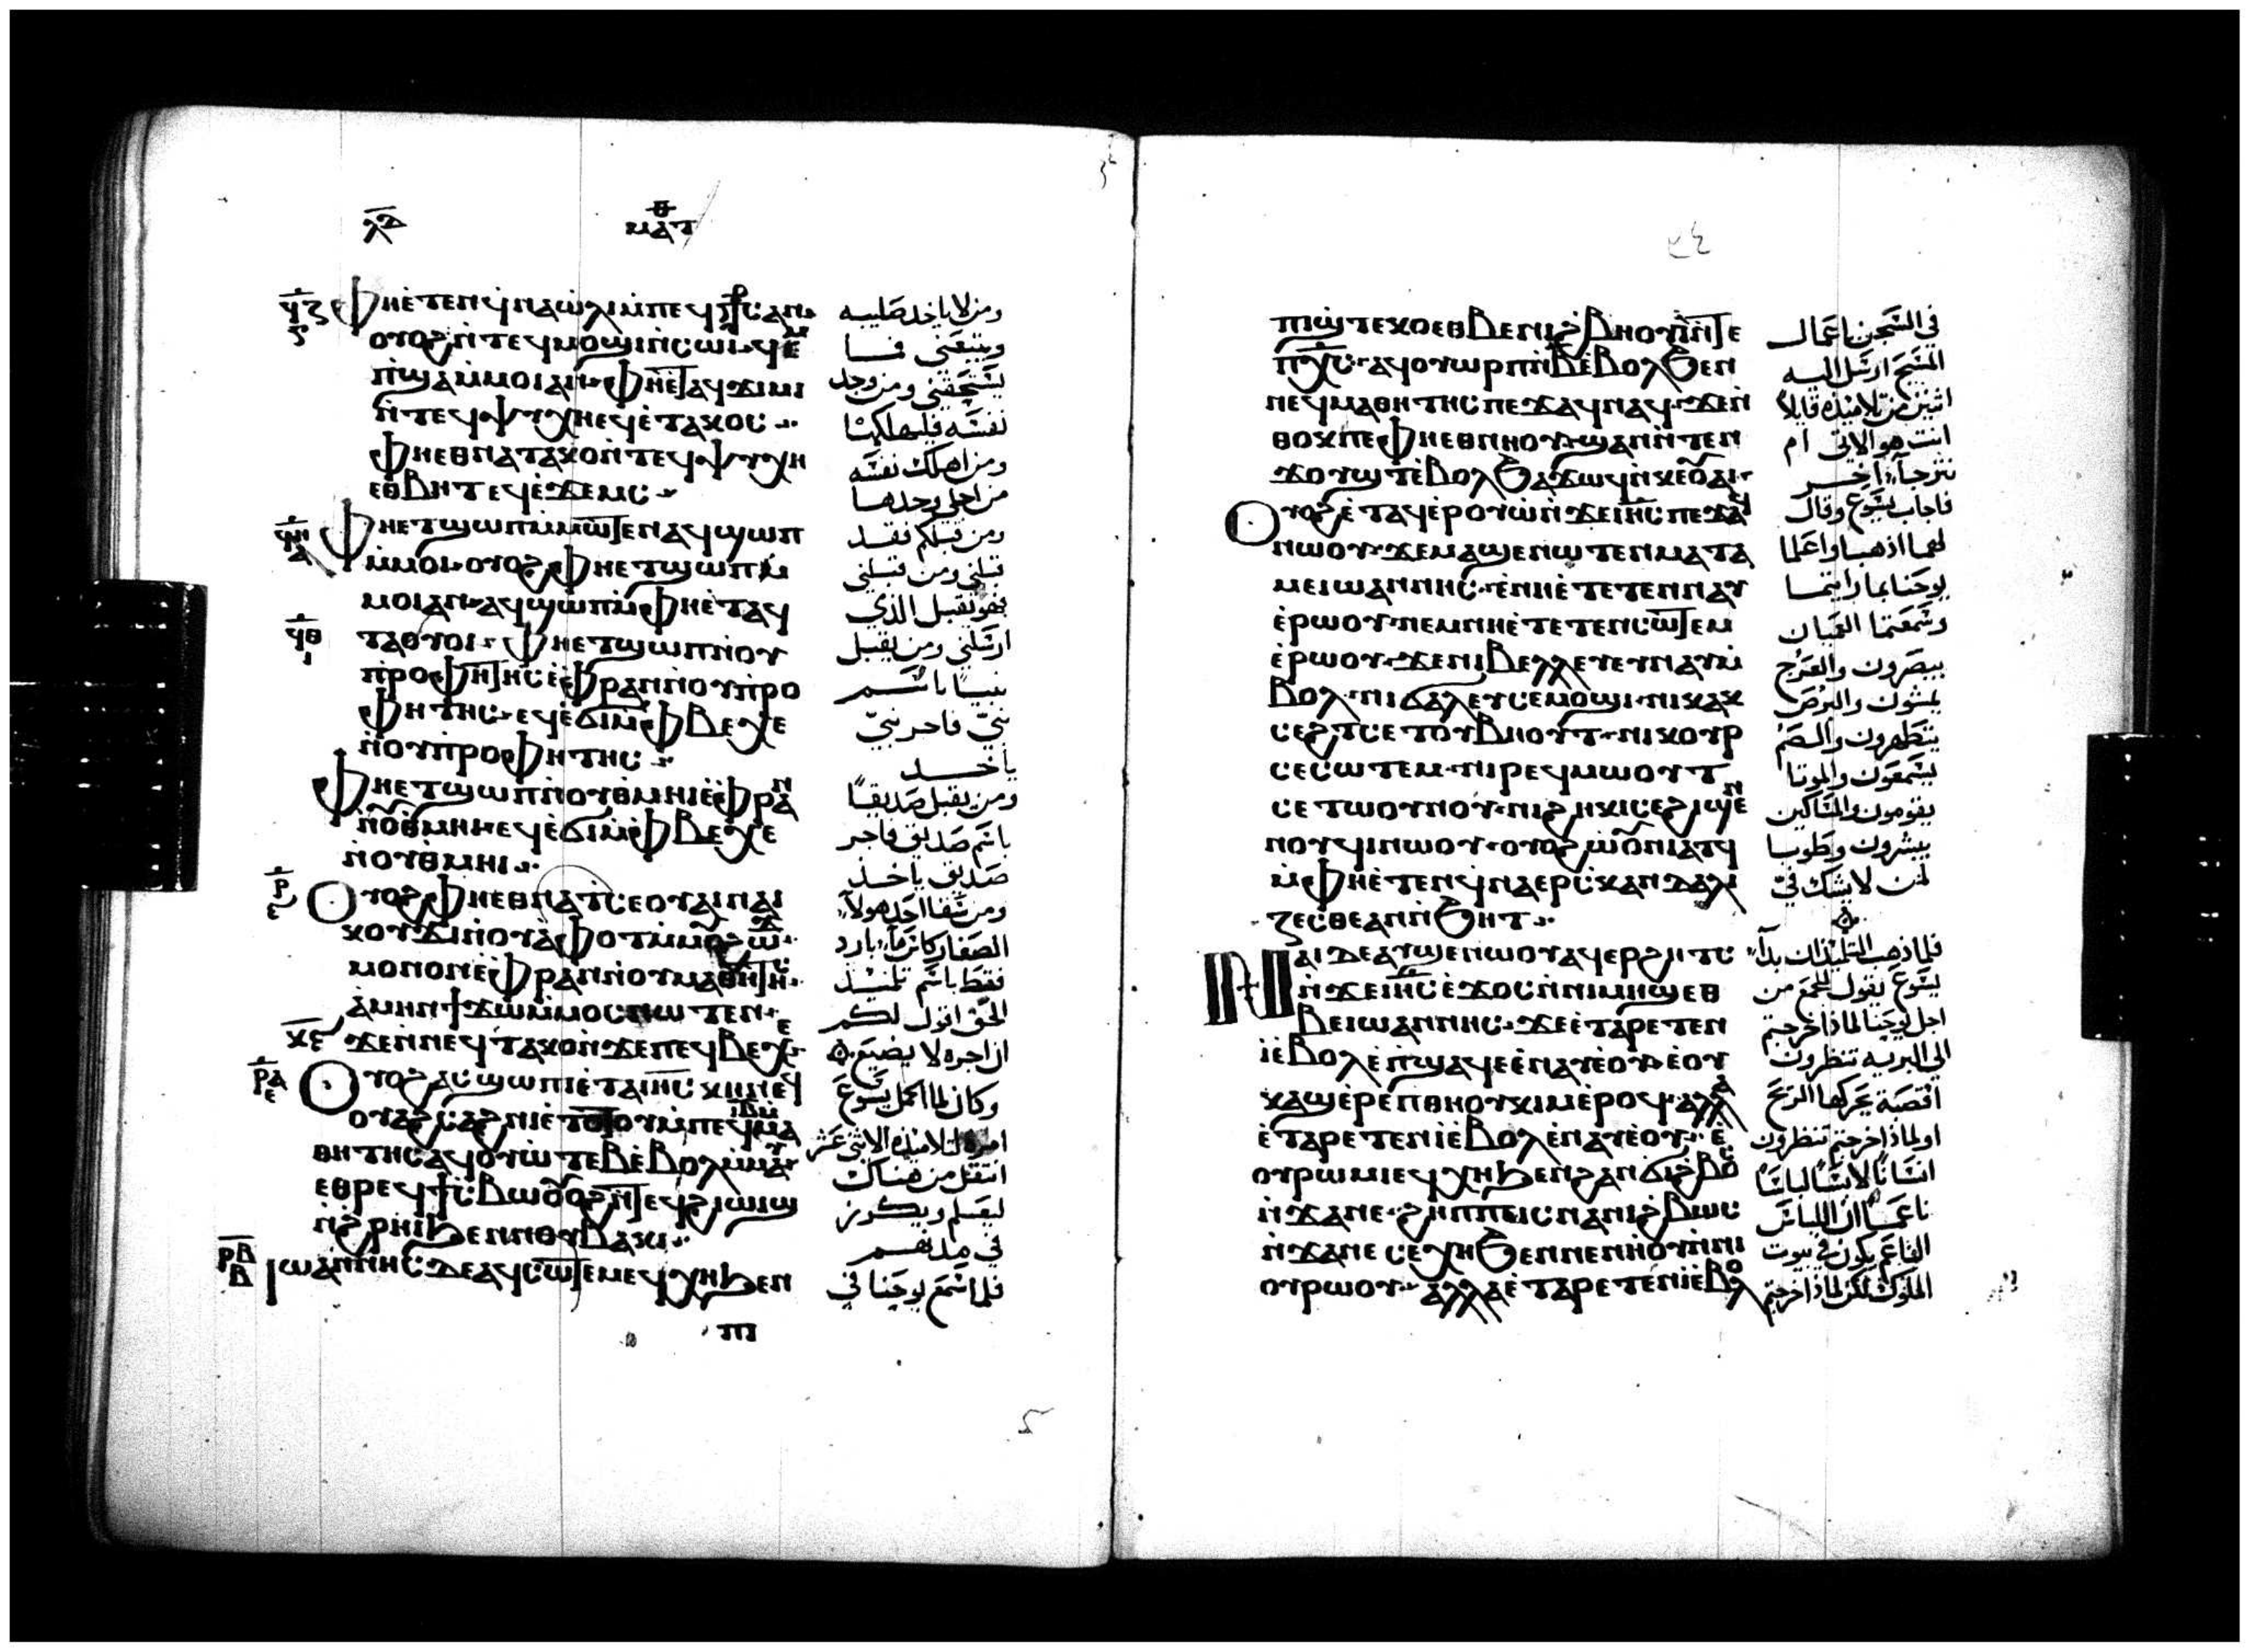 ⲗⲇ
ⲙⲁⲧ
ϥⲍ
ⲫⲏⲉ̀ⲧⲉⲛϥ̀ⲛⲁⲱ̀ⲗⲓⲙ̀ⲡⲉϥⲥ̀ⲧⲁⲩⲣⲟⲥ ⲁⲛ
ⲟⲩⲟϩⲛ̀ⲧⲉϥⲙⲟϣⲓⲛ̀ⲥⲱⲓ ϥⲉⲙ
ⲡ̀ϣⲁⲙ̀ⲙⲟⲓⲁⲛ ⲫⲏⲉ̀ⲧⲁϥϫⲓⲙⲓ
ⲛ̀ⲧⲉϥⲯⲩⲭⲏⲉϥⲉ̀ⲧⲁⲕⲟⲥ
ⲫⲏⲉⲑⲛⲁⲧⲁⲕⲟⲛ̀ⲧⲉϥⲯⲩⲭⲏ
ⲉⲑⲃⲏⲧⲉϥⲉ̀ϫⲉⲙⲥ
ⲫⲏⲉⲧϣⲱⲡⲙ̀ⲙⲱⲧⲉⲛⲁϥϣⲱⲡ
ⲙ̀ⲙⲟⲓ ⲟⲩⲟϩ ⲫⲏⲉⲧϣⲱⲡⲙ̀
ⲙⲟⲓⲁⲛ ⲁϥϣⲱⲡⲙ̀ⲫⲏⲉ̀ⲧⲁϥ
ϥⲑ
ⲧⲁⲟⲩⲟⲓ ⲫⲏⲉⲧϣⲱⲡⲛ̀ⲟⲩ
ⲡ̀ⲣⲟⲫⲏⲧⲏⲥⲉ̀ⲫⲣⲁⲛⲛ̀ⲟⲩⲡ̀ⲣⲟ
ⲫⲏⲧⲏⲥ ⲉϥⲉ̀ϭⲓⲙ̀ⲫⲃⲉⲭⲉ
ⲛ̀ⲟⲩⲡ̀ⲣⲟⲫⲏⲧⲏⲥ
ⲫⲏⲉⲧϣⲱⲡⲛ̀ⲟⲩⲑⲙⲏⲓⲉ̀ⲫⲣⲁⲛ
ⲛ̀ⲟⲩⲑⲙⲏⲓ ⲉϥⲉ̀ϭⲓⲙ̀ⲫⲃⲉⲭⲉ
ⲛ̀ⲟⲩⲑⲙⲏⲓ
ⲣ
ⲟⲩⲟϩ ⲫⲏⲉⲑⲛⲁⲧⲥⲉⲟⲩⲁⲓⲛⲁⲓ
ⲕⲟⲩϫⲓⲛ̀ⲟⲩⲁⲫⲟⲧⲙ̀ⲙⲱⲟⲩ
ⲙⲟⲛⲟⲛⲉ̀ⲫⲣⲁⲛⲛ̀ⲟⲩⲙⲁⲑⲏⲧⲏⲥ
ⲁ̀ⲙⲏⲛ ϯϫⲱⲙ̀ⲙⲟⲥⲛⲱⲧⲉⲛ
ϫⲉⲛ̀ⲛⲉϥⲧⲁⲕⲟⲛ̀ϫⲉⲡⲉϥⲃⲉⲭⲉ
ⲣⲁ
ⲟⲩⲟϩ ⲁⲥϣⲱⲡⲓⲉ̀ⲧⲁⲓⲏⲥ ⲕⲏⲛⲉϥ
ⲟⲩⲁϩⲥⲁϩⲛⲓⲉ̀ⲧⲟⲧⲟⲩⲙ̀ⲡⲉϥⲓⲃ ⲙ̀ⲙⲁ
ⲑⲏⲧⲏⲥ ⲁϥⲟⲩⲱ̀ⲧⲉⲃⲉ̀ⲃⲟⲗⲙ̀ⲙⲁⲩ
ⲉⲑⲣⲉϥϯⲥ̀ⲃⲱⲟⲩⲟϩⲛ̀ⲧⲉϥϩⲓⲱⲓϣ
ⲛ̀ϩⲣⲏⲓϧⲉⲛⲛⲟⲩⲃⲁⲕⲓ
ⲣⲃ
ⲓⲱⲁⲛⲛⲏⲥ ⲇⲉⲁϥⲥⲱⲧⲉⲙⲉϥⲭⲏϧⲉⲛ
ⲡⲓ
ومن لا ياخد صليبه
ويتبعني فما
يستحقني ومن وجد
نفسه فليهلكها
ومن اهلك نفسه
من اجلي وجدها
ومن قبلكم فقد
قبلني ومن قبلني
فهو يقبل الذي
ارسلني ومن يقبل
نبيًا باسم
نبيّ فاجر نبيّ
ياخد
ومن يقبل صديقًا
باسم صديق فاجر
صديق ياخد
ومن سقا احد هولاء
الصغار كاس ماء بارد
فقط باسم تلميذ
الحق اقول لكم
ان اجره لا يضيع
وكان لما اكمل يسوع
امره لتلاميذه الاثني عشر
انتقل من هناك
ليعلم ويكرز
في مدنهم
فلما سمع يوحنا في
٣٤
ⲡⲓϣ̀ⲧⲉⲕⲟⲉⲑⲃⲉⲛⲓϩⲃⲏⲟⲩⲓ̀ⲛ̀ⲧⲉ
ⲡⲭⲥ ⲁϥⲟⲩⲱⲣⲡⲛ̀ⲃⲉ̀ⲃⲟⲗϧⲉⲛ
ⲛⲉϥⲙⲁⲑⲏⲧⲏⲥ ⲡⲉϫⲁϥⲛⲁϥ ϫⲉⲛ̀
ⲑⲟⲕⲡⲉⲫⲏⲉⲑⲛⲏⲟⲩϣⲁⲛⲛ̀ⲧⲉⲛ
ϫⲟⲩϣⲧⲉ̀ⲃⲟⲗϧⲁϫⲱϥⲛ̀ⲕⲉⲟⲩⲁⲓ
ⲟⲩⲟϩ ⲉ̀ⲧⲁϥⲉ̀ⲣⲟⲩⲱⲛ̀ϫⲉⲓⲏⲥ ⲡⲉϫⲁϥ
ⲛⲱⲟⲩ ϫⲉⲙⲁϣⲉⲛⲱⲧⲉⲛⲙⲁⲧⲁ
ⲙⲉⲓⲱⲁⲛⲛⲏⲥ ⲉ̀ⲛⲏⲉ̀ⲧⲉⲧⲉⲛⲛⲁⲩ
ⲉ̀ⲣⲱⲟⲩ ⲛⲉⲙⲛⲏⲉ̀ⲧⲉⲧⲉⲛⲥⲱⲧⲉⲙ
ⲉ̀ⲣⲱⲟⲩ ϫⲉⲛⲓⲃⲉⲗⲗⲉⲩⲉⲩⲛⲁⲩⲙ̀
ⲃⲟⲗ ⲛⲓϭⲁⲗⲉⲩⲥⲉⲙⲟϣⲓ ⲛⲓⲕⲁⲕ
ⲥⲉϩⲧⲥⲉⲧⲟⲩⲃⲏⲟⲩⲧ ⲛⲓⲕⲟⲩⲣ
ⲥⲉⲥⲱⲧⲉⲙ ⲛⲓⲣⲉϥⲙⲱⲟⲩⲧ
ⲥⲉⲧⲱⲟⲩⲛⲟⲩ ⲛⲓϩⲏⲕⲓⲥⲉϩⲓϣⲉⲛ
ⲛⲟⲩϥⲓⲛⲱⲟⲩ ⲟⲩⲟϩ ⲱⲟⲩⲛⲓⲁⲧϥ
ⲙ̀ⲫⲏⲉ̀ⲧⲉⲛϥ̀ⲛⲁⲉⲣⲥ̀ⲕⲁⲛⲇⲁⲗⲓ
ⲍⲉⲥⲑⲉⲁⲛⲛ̀ϧⲏⲧ
ⲛⲁⲓⲇⲉⲁⲩϣⲉⲛⲱⲟⲩⲁϥⲉⲣϩⲏⲧⲥ
ⲛ̀ϫⲉⲓⲏⲥ ⲉ̀ϫⲟⲥⲛ̀ⲛⲓⲙⲏϣⲉⲑ
ⲃⲉⲓⲱⲁⲛⲛⲏⲥ ϫⲉⲉ̀ⲧⲁⲣⲉⲧⲉⲛ
ⲓ̀ⲉ̀ⲃⲟⲗⲉ̀ⲡϣⲁϥⲉⲉ̀ⲛⲁⲩⲉ̀ⲟⲩ ⲉ̀ⲟⲩ
ⲕⲁϣⲉ̀ⲣⲉⲡⲑⲏⲟⲩⲕⲓⲙⲉ̀ⲣⲟϥ ⲁⲗⲗⲁ
ⲉ̀ⲧⲁⲣⲉⲧⲉⲛⲓ̀ⲉ̀ⲃⲟⲗⲉ̀ⲛⲁⲩⲉ̀ⲟⲩ ⲉ̀
ⲟⲩⲣⲱⲙⲓⲉϥⲭⲏϧⲉⲛϩⲁⲛϩ̀ⲃⲱⲥ
ⲛ̀ϫⲁⲛⲉ ϩⲏⲡⲡⲉⲓⲥⲛⲁⲛⲓϩⲃⲱⲥ
ⲛ̀ϫⲁⲛⲉⲥⲉⲭⲏϧⲉⲛⲛⲉⲛⲏⲟⲩⲛ̀ⲛⲓ
ⲟⲩⲣⲱⲟⲩ ⲁⲗⲗⲁⲉ̀ⲧⲁⲣⲉⲧⲉⲛⲓ̀ⲉ̀ⲃⲟⲗ
في السجن باعمال
المسيح ارسل اليه
اثنين من تلاميذه قايلًا
انت هو الاتي ام
نترجاء اخر
فاجاب يسوع وقال
لهما اذهبا واعلما
يوحنا بما رايتما
وسمعتما العميان
يبصرون والعرج
يمشون والبرص
يتطهرون والصم
يسمعون والموتا
يقومون والمساكين
يبشرون وطوبا
لمن لا يشك فيّ
فلما ذهب التلميذان بداء
يسوع يقول للجمع من
اجل يوحنا لماذا خرجتم
الي البريه تنظرون
اقصبة يحركها الريح
او لماذا خرجتم تنظرون
انسانًا لابسًا لباسًا
ناعمًا ان اللباس
الناعم يكون في بيوت
الملوك لكن لماذا خرجتم